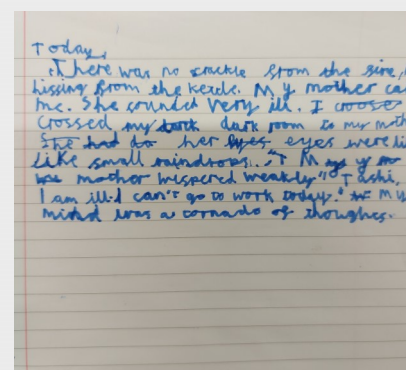 Today,
There was no crackle from the fire,
hissing from the kettle. My mother ca
me. She sounded very ill. I croose
Crossed my dark dark room to my moth
She had da her eyes eyes were li
like small raindrops. "T My mo
mother wispered weakly." "Tashi,
I am ill. I can't go to work today." My
mind was a tornado of thoughts.